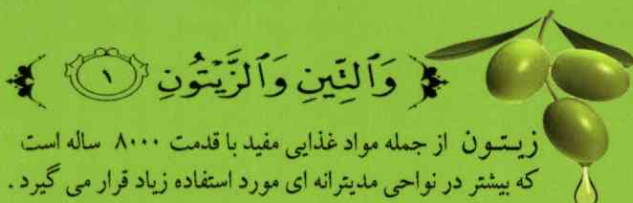 ﴿ وَٱلتِّينِ وَٱلزَّيْتُونِ ۝١ ﴾
زیتون از جمله مواد غذایی مفید با قدمت ۸۰۰۰ ساله است
که بیشتر در نواحی مدیترانه ای مورد استفاده زیاد قرار می گیرد .